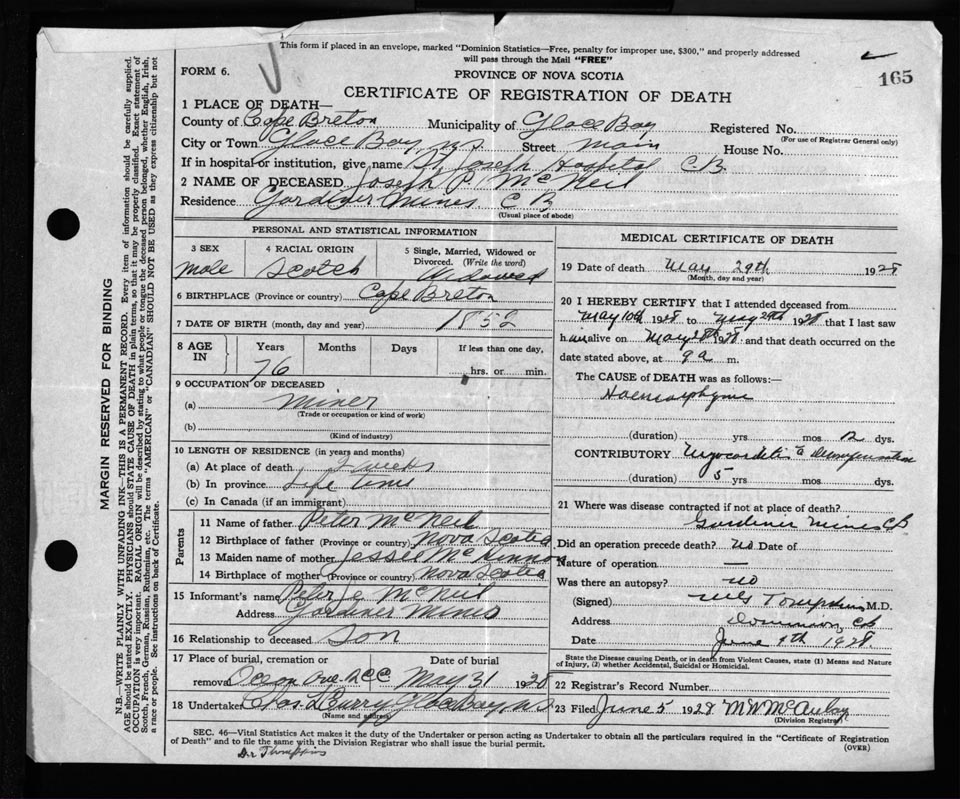 This form if placed in an envelope, marked "Dominion Statistics—Free, penalty for improper use, $300," and properly addressed
will pass through the Mail "FREE"
FORM 6.
PROVINCE OF NOVA SCOTIA
165
CERTIFICATE OF REGISTRATION OF DEATH
1 PLACE OF DEATH—
County of Cape Breton Municipality of Glace Bay Registered No.
(For use of Registrar General only)
City or Town Glace Bay, N.S. Street Main House No.
If in hospital or institution, give name St Joseph Hospital C B.
2 NAME OF DECEASED Joseph P. McNeil
Residence Gardiner Mines C B
(Usual place of abode)
PERSONAL AND STATISTICAL INFORMATION
3 SEX
male
4 RACIAL ORIGIN
Scotch
5 Single, Married, Widowed or Divorced. (Write the word)
Widowed
6 BIRTHPLACE (Province or country) Cape Breton
7 DATE OF BIRTH (month, day and year) 1852
8 AGE IN
Years Months Days If less than one day,
76 hrs. or min.
9 OCCUPATION OF DECEASED
(a) Miner
(Trade or occupation or kind of work)
(b)
(Kind of industry)
10 LENGTH OF RESIDENCE (in years and months)
(a) At place of death 2 weeks
(b) In province Life time
(c) In Canada (if an immigrant)
Parents
11 Name of father Peter McNeil
12 Birthplace of father (Province or country) Nova Scotia
13 Maiden name of mother Jessie McKinnon
14 Birthplace of mother (Province or country) Nova Scotia
15 Informant's name Peter J. McNeil
Address Gardiner Mines
16 Relationship to deceased Son
17 Place of burial, cremation or removal Date of burial
May 31 1928
18 Undertaker Chas. Curry, Glace Bay, N.S.
(Name and address)
MEDICAL CERTIFICATE OF DEATH
19 Date of death May 29th 1928
(Month, day and year)
20 I HEREBY CERTIFY that I attended deceased from
May 10th 1928 to May 29th 1928 that I last saw
him alive on May 28 1928 and that death occurred on the
date stated above, at 9 a m.
The CAUSE of DEATH was as follows:—
(duration) yrs mos 2 dys.
CONTRIBUTORY Myocarditis
(duration) 5 yrs mos dys.
21 Where was disease contracted if not at place of death?
Gardiner Mines CB
Did an operation precede death? no Date of
Nature of operation —
Was there an autopsy? no
(Signed) Tompkins M.D.
Address Dominion, CB
Date June 4th 1928
State the Disease causing Death, or in death from Violent Causes, state (1) Means and Nature
of Injury, (2) whether Accidental, Suicidal or Homicidal.
22 Registrar's Record Number
23 Filed June 5 1928 McAulay
(Division Registrar)
SEC. 46—Vital Statistics Act makes it the duty of the Undertaker or person acting as Undertaker to obtain all the particulars required in the "Certificate of Registration
of Death" and to file the same with the Division Registrar who shall issue the burial permit.
(OVER)
Dr Thompkins
MARGIN RESERVED FOR BINDING
N.B.—WRITE PLAINLY WITH UNFADING INK—THIS IS A PERMANENT RECORD. Every item of information should be carefully supplied.
AGE should be stated EXACTLY. PHYSICIANS should STATE CAUSE OF DEATH in plain terms, so that it may be properly classified. Exact statement of
OCCUPATION is very important. RACIAL ORIGIN will be described by stating to what people or tongue the deceased person belonged, whether English, Irish,
Scotch, French, German, Russian, Ruthenian, etc. The terms "AMERICAN" or "CANADIAN" SHOULD NOT BE USED as they express citizenship but not
a race or people. See instructions on back of Certificate.